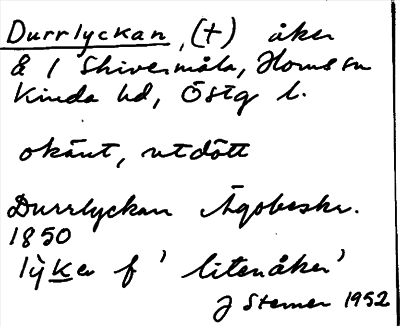 Durrlyckan, (+) åker
Å 1 Skivermåla, Horns sn
Kinda hd, Östg l.
okänt, utdött
Durrlyckan Ägobeskr.
1850
lỳker f 'liten åker'
J Sterner 1952